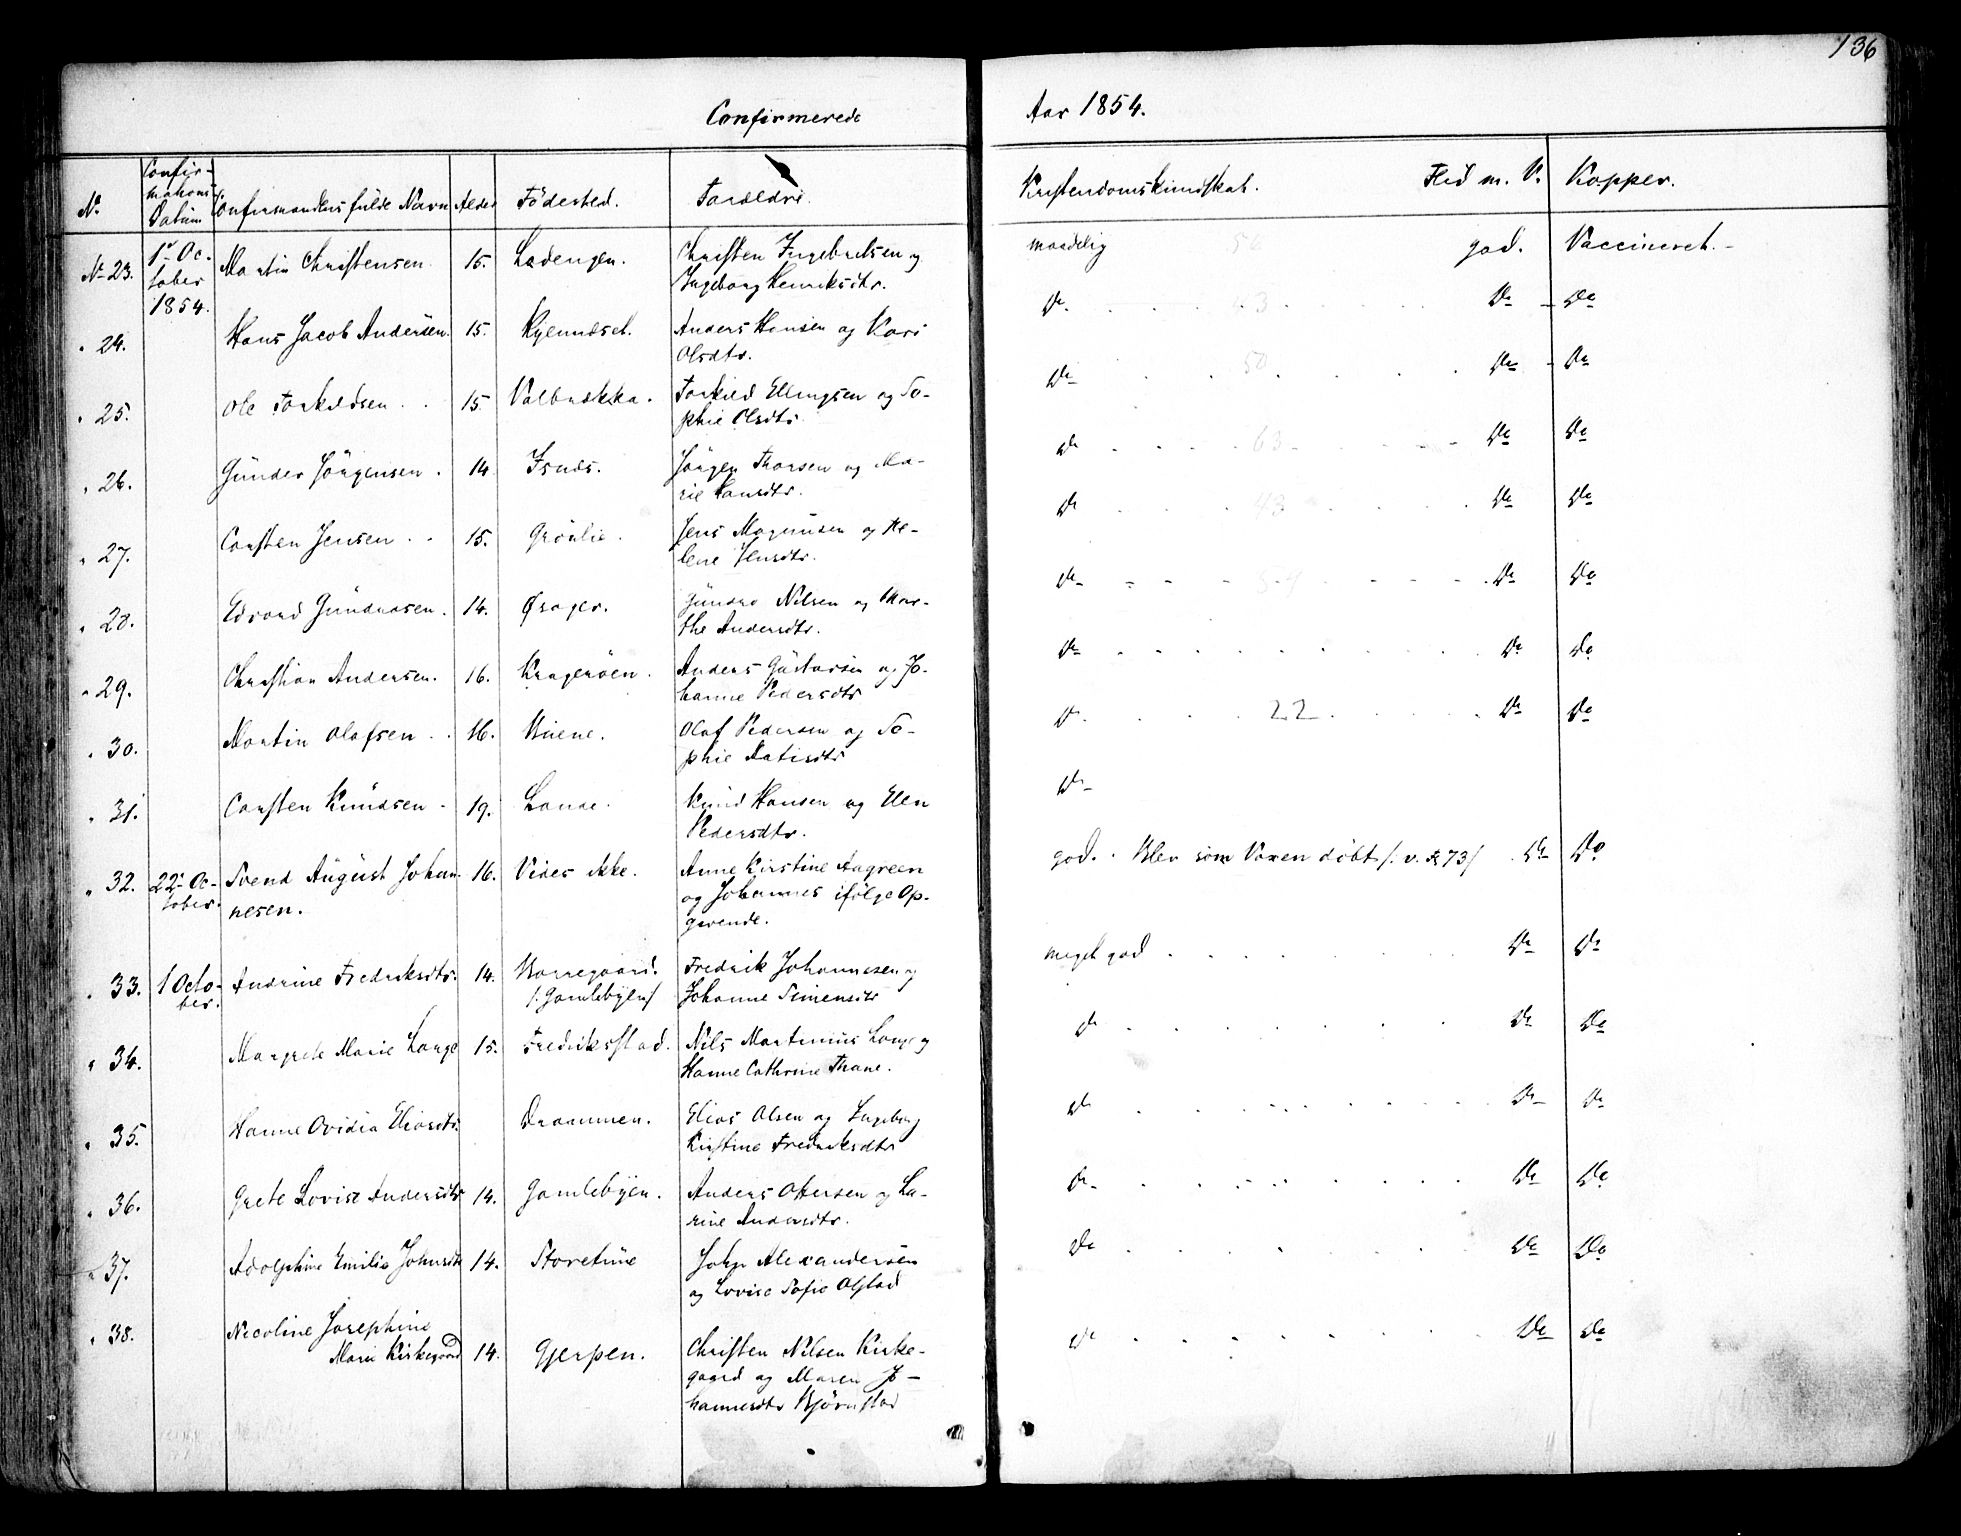 136
Confirmerede Aar 1854.
No. Confirmations Datum Confirmandens fulde Navn Alder Födested. Forældre. Kristendomskundskab. Flid m. V. Kopper.
No 23. 1ste October 1854. Martin Christensen. 15. Ladengen. Christen Ingebretsen og maadelig god. Vaccineret.
Ingeborg Henriksdtr.
" 24. Hans Jacob Andersen. 15. Anders Hansen og Kari Do Do Do
Olsdtr.
" 25. Ole Torkildsen 15 Valbrække. Torkild Ellingsen og So- Do 50 Do Do
phie Olsdtr.
" 26. Günder Jörgensen. 14 Isnes. Jörgen Thorsen og Ma- Do 63 Do Do
rie Hansdtr.
" 27. Carsten Jensen 15. Grönlie. Jens Magnüsen og He- Do 43 Do Do
lene Jensdtr.
" 28. Edvard Gündersen. 14. Gunder Nilsen og Mar- Do 54 Do Do
the Andersdtr.
" 29. Christian Andersen. 16. Kragerøen. Anders Güstavsen og Jo- Do Do Do
hanne Pedersdtr
" 30. Martin Olafsen 16. Büene. Olaf Pedersen og So- Do 22 Do Do
phie Matisdtr
" 31. Carsten Knüdsen 19. Lande. Knüd Hansen og Ellen Do
Pedersdtr.
" 32. 22de October. Svend Aügüst Johan- 16. Vides ikke. Anne Kirstine Aagreen god. Blev som Voxen döbt /: v. F. 73/ Do Do
nesen. og Johannes ifölge Op-
givende.
" 33. 1 October. Andrine Fredriksdtr. 14. Borregaard. Fredrik Johannesen og meget god Do Do
/: Gamlebyen/ Johanne Simensdtr
" 34. Margrete Marie Lange 15. Fredriksstad. Nils Martinius Lange og Do Do Do
Hanne Cathrine Thrane.
" 35. Hanne Ovidia Eliasdtr. Drammen. Elias Olsen og Ingeborg Do Do Do
Kirstine Fredriksdtr
" 36. Grete Lovise Andersdtr 14. Gamlebyen. Anders Ottersen og La- Do Do Do
rine Andersdtr.
" 37. Adolphine Emilie Johnsdtr 14. Storetüne John Alexandersen Do Do Do
og Lovise Sofie Olstad
" 38. Nicoline Josephine
Marie Kirkegaard 14. Gjerpen. Christen Nilsen Kirke- Do Do Do
gaard og Maren Jo-
hannesdtr Bjørnstad